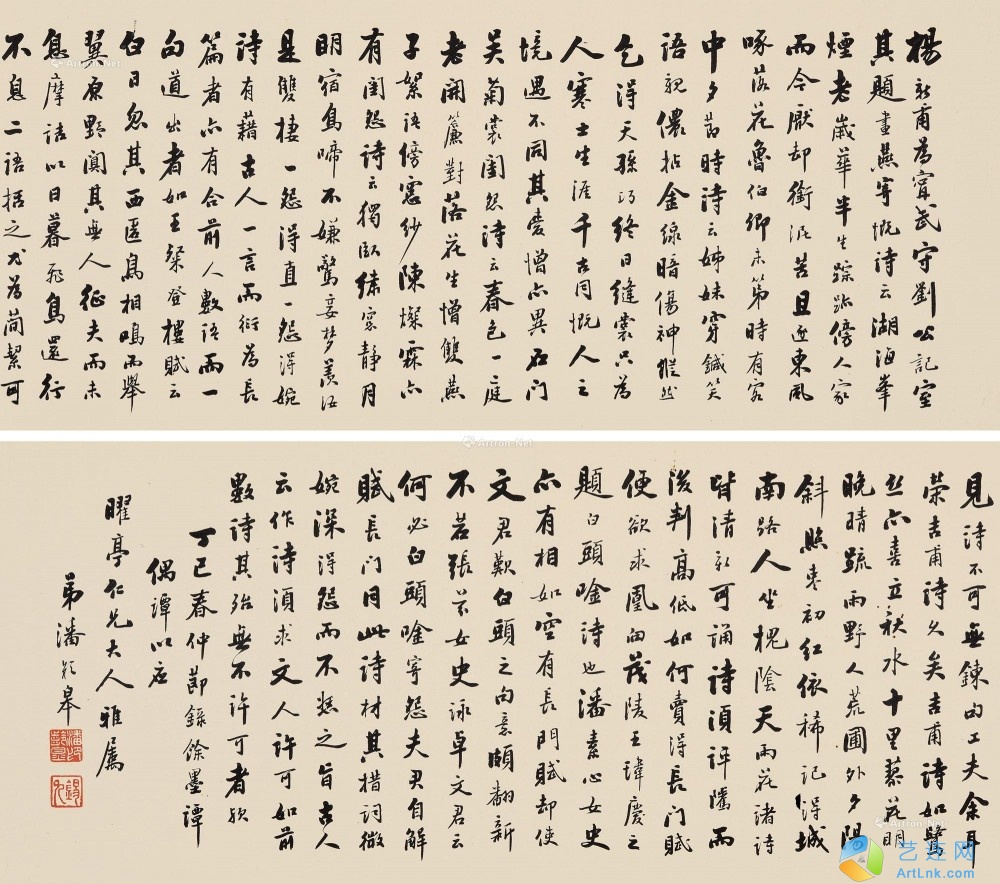 楊新甫為寧武守劉公記室
其題畫燕寄慨詩云湖海峯
煙老歲華半生踪跡傍人家
而今厭却銜泥苦且逐東風
啄落花魯伯卿未第時有客
中夕苗時詩云姊妹穿鍼笑
語親儂拈金線暗傷神縱然
乞得天孫巧終日縫裳只為
人寒士生涯千古同慨人之
境遇不同其愛憎亦異石門
吴菊裳閨怨詩云春色一庭
老開簾對落花生憎雙燕
子絮語傍窓紗陳燦霖亦
有閨怨詩云獨臥綀窓靜月
明宿鳥啼不嫌驚妾夢羨汝
是雙棲一怨得直一怨得婉
詩有藉古人一言而衍為長
篇者亦有合前人數語而一
句道出者如王粲登樓賦云
白日忽其西匿鳥相鳴而舉
翼原野闃其無人征夫而未
息摩詰以日暮飛鳥還行
不息二語括之尤為簡絜可
見詩不可無鍊句工夫余耳
榮吉甫詩久矣吉甫詩如鷺
絲亦喜立秋水十里蓼花明
晚晴疏雨野人荒圃外夕陽
斜照棗初紅依稀記得城
南路人坐槐陰天雨花諸詩
皆清新可誦詩須評隲而
後判高低如何賣得長門賦
便欲求凰向茂陵王瑋慶之
題白頭唫詩也潘素心女史
亦有相如空有長門賦却使
文君歎白頭之句意頗翻新
不若張芬女史詠卓文君云
何必白頭唫寄怨夫君自解
賦長門同此詩材其措詞微
婉深得怨而不怒之旨古人
云作詩須求文人許可如前
數詩其殆無不許可者歟
丁巳春仲節錄餘墨譚
偶譚以應
曜亭仁兄大人雅屬
弟潘齡皋
Artron.Net
艺连网
ArtLnk.com